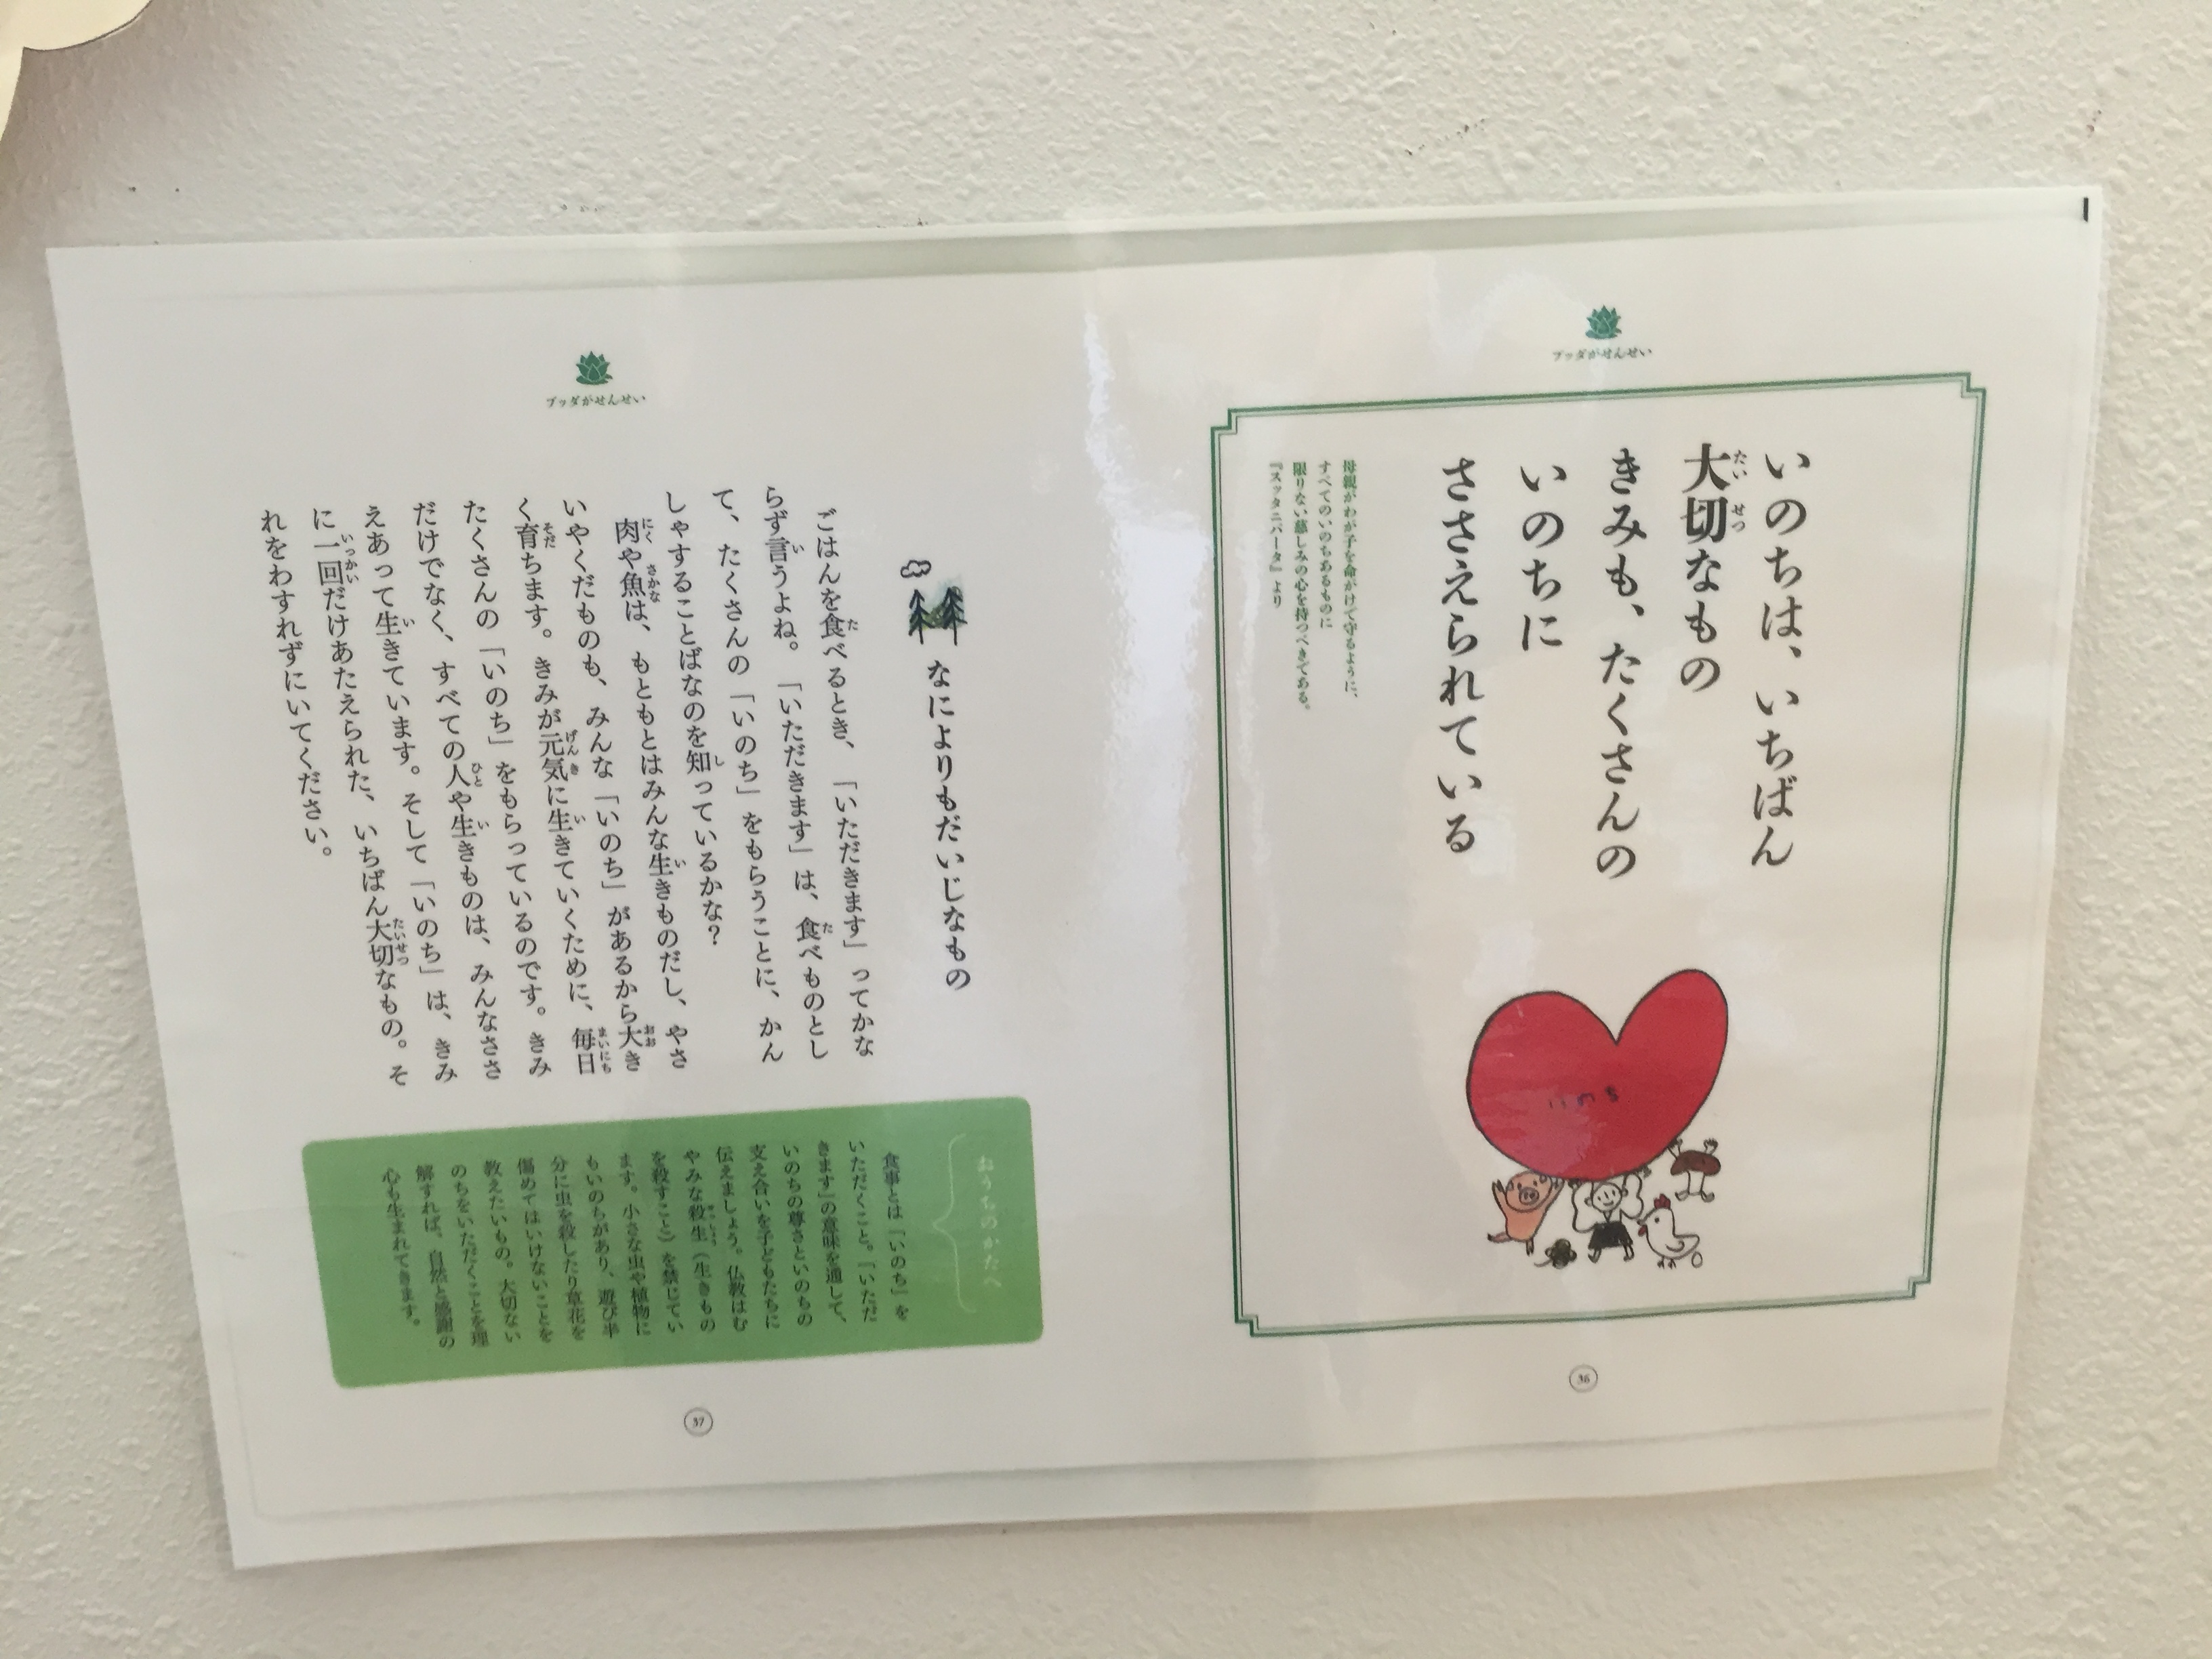 ブッダがせんせい
いのちは、いちばん
大切なもの
たいせつ
きみも、たくさんの
いのちに
ささえられている
母親がわが子を命がけで守るように、
すべてのいのちあるものに
限りない慈しみの心を持つべきである。
『スッタニパータ』より
いのち
36
ブッダがせんせい
なによりもだいじなもの
ごはんを食べるとき、「いただきます」ってかな
らず言うよね。「いただきます」は、食べものとし
て、たくさんの「いのち」をもらうことに、かん
しゃすることばなのを知っているかな?
肉や魚は、もともとはみんな生きものだし、やさ
いやくだものも、みんな「いのち」があるから大き
く育ちます。きみが元気に生きていくために、毎日
たくさんの「いのち」をもらっているのです。きみ
だけでなく、すべての人や生きものは、みんなささ
えあって生きています。そして「いのち」は、きみ
に一回だけあたえられた、いちばん大切なもの。そ
れをわすれずにいてください。
おうちのかたへ
食事とは「いのち」を
いただくこと。「いただ
きます」の意味を通して、
いのちの尊さといのちの
支え合いを子どもたちに
伝えましょう。仏教はむ
やみな殺生(生きもの
を殺すこと)を禁じてい
ます。小さな虫や植物に
もいのちがあり、遊び半
分に虫を殺したり草花を
傷めてはいけないことを
教えたいもの。大切ない
のちをいただくことを理
解すれば、自然と感謝の
心も生まれてきます。
37